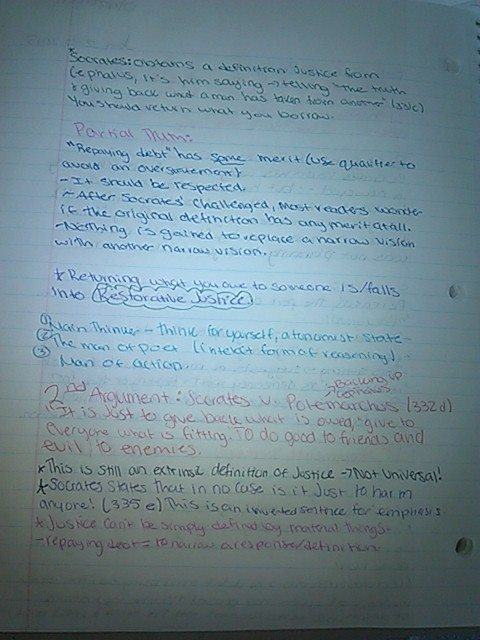 *Socrates: obtains a definition Justice from
Cephalus, it's him saying → telling "the truth
& giving back what a man has taken from another" (331c)
You should return what you borrow.
Partial Truth:
*"Repaying debt" has some merit (use qualifier to
avoid an overstatement)
- It should be respected.
~ After Socrates' challenged, most readers wonder
if the original definition has any merit at all.
- Nothing is gained to replace a narrow vision
with another narrow vision.
* Returning what you owe to someone is/falls
into Restorative Justice
① Main Thinker - think for yourself, state
② The man of poet (interact form of reasoning)
③ Man of action
2nd Argument: Socrates v. Polemarchus (332d)
→ Backing up Cephalus
"It is just to give back what is owed," give to
everyone what is fitting. To do good to friends and
evil to enemies.
* This is still an extrinsic definition of Justice → Not Universal!
* Socrates states that in no case is it Just to harm
anyone! (335e) This is an inverted sentence for emphasis.
* Justice can't be simply defined by material things.
- repaying debt = to narrow a response/definition.